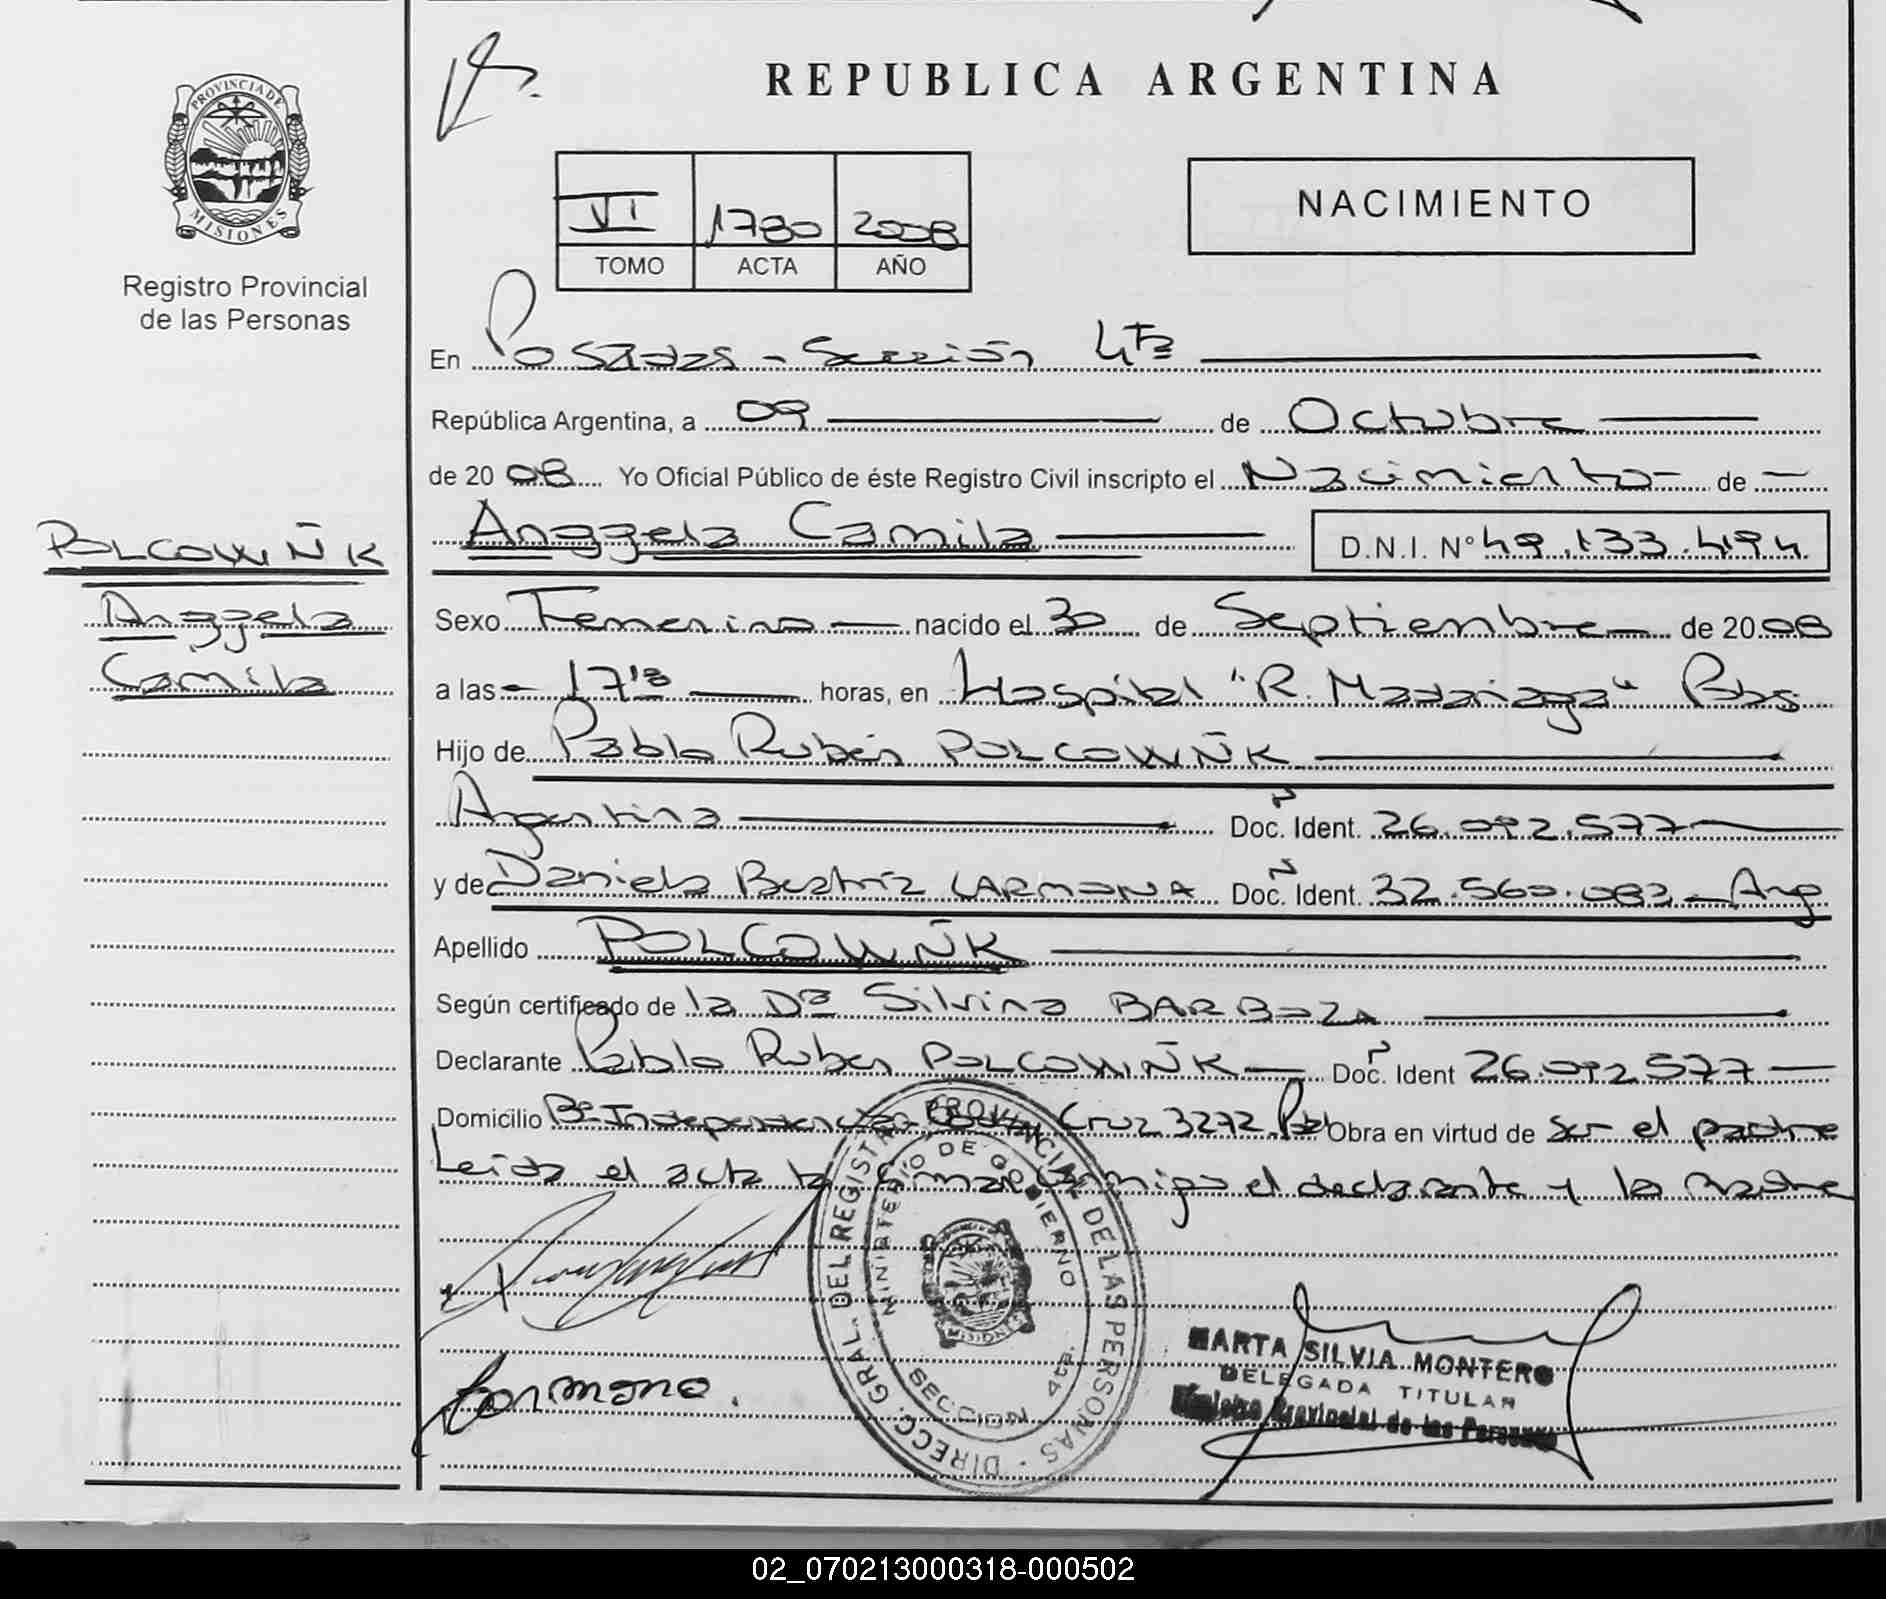 REPUBLICA ARGENTINA
PROVINCIA DE MISIONES
Registro Provincial
de las Personas
VI 1780 2008
TOMO ACTA AÑO
NACIMIENTO
En Posadas - Sección 4ta
República Argentina, a 09 de Octubre
de 20 08 Yo Oficial Público de éste Registro Civil inscripto el Nacimiento - de -
Anggela Camila D.N.I. Nº 49.133.494
POLCOWIÑK
Anggela
Camila
Sexo Femenino nacido el 30 de Septiembre de 20 08
a las - 17'13 horas, en Hospital "R. Madariaga" Pdas
Hijo de Pablo Rubén POLCOWIÑK
Argentina Doc. Ident. 26.092.577
y de Daniela Beatriz CARMONA Doc. Ident. 32.560.083 - Arg
Apellido POLCOWIÑK
Según certificado de la Dra Silvina BARBOZA
Declarante Pablo Ruben POLCOWIÑK Doc. Ident 26.092577
Domicilio Bº Independencia Cruz 3272 Obra en virtud de ser el padre
Leida el acta la firman conmigo el declarante y la Madre
DIRECC. GRAL. DEL REGISTRO PROVINCIAL DE LAS PERSONAS
MINISTERIO DE GOBIERNO
MISIONES
SECCION 4ta.
Carmona.
MARTA SILVIA MONTERO
DELEGADA TITULAR
Registro Provincial de las Personas
02_070213000318-000502